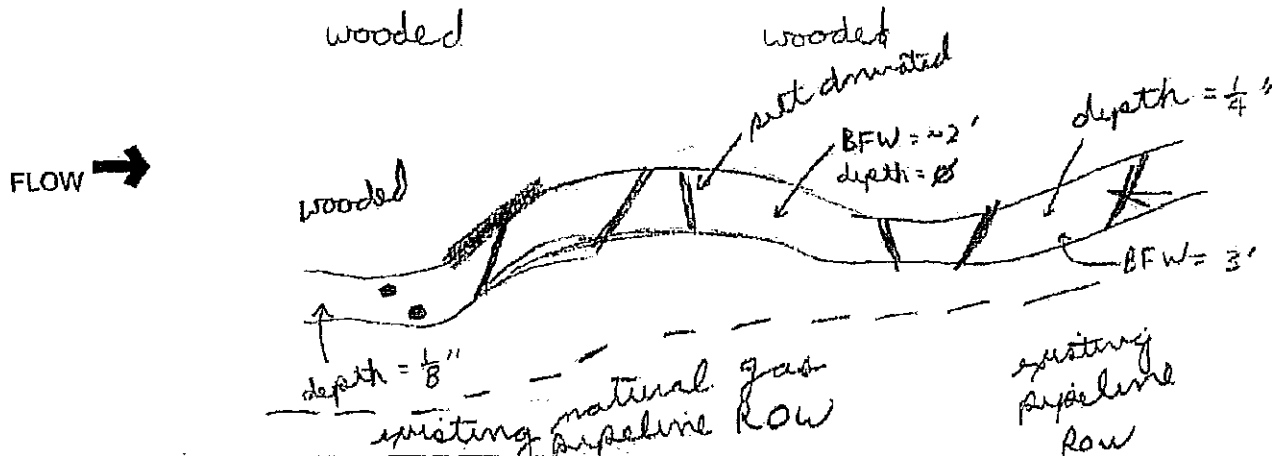 wooded
wooded
silt dominated
BFW = ~2'
depth = ø
depth = 1/4"
FLOW
wooded
BFW = 3'
depth = 1/8"
existing natural gas
pipeline ROW
existing
pipeline
ROW